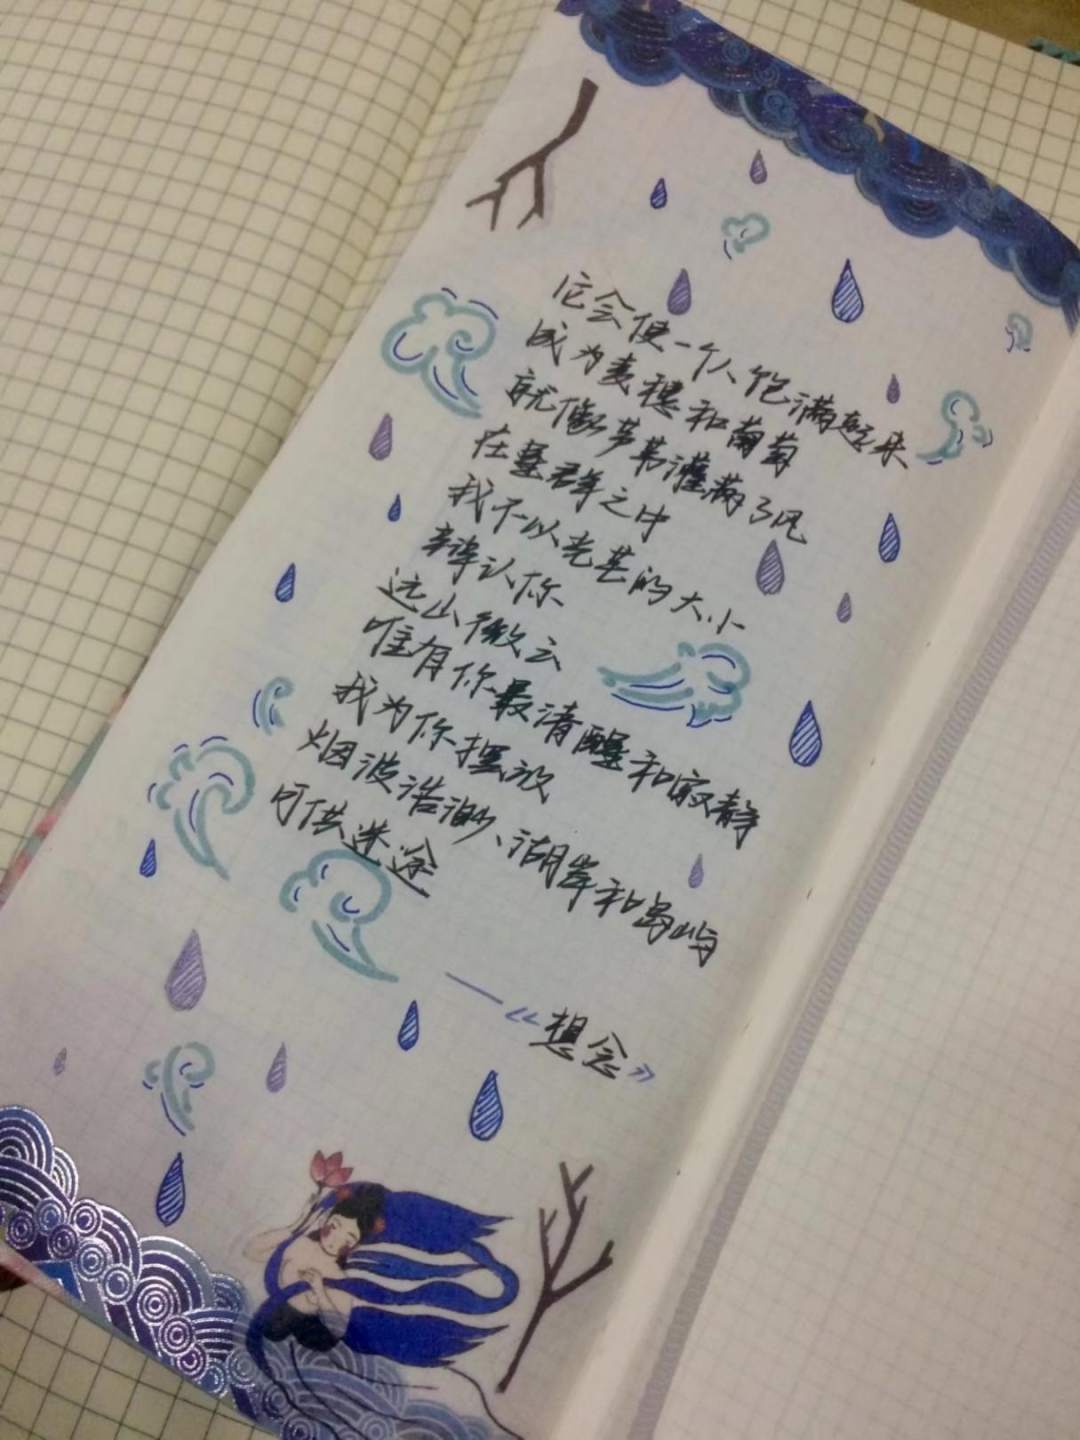 它会使一个人饱满起来
成为麦穗和葡萄
就像芦苇灌满了风
在星群之中
我不以光芒的大小
辨认你
远山微云
唯有你最清醒和寂静
我为你摆放
烟波浩渺、湖岸和岛屿
可供迷途
——《想念》